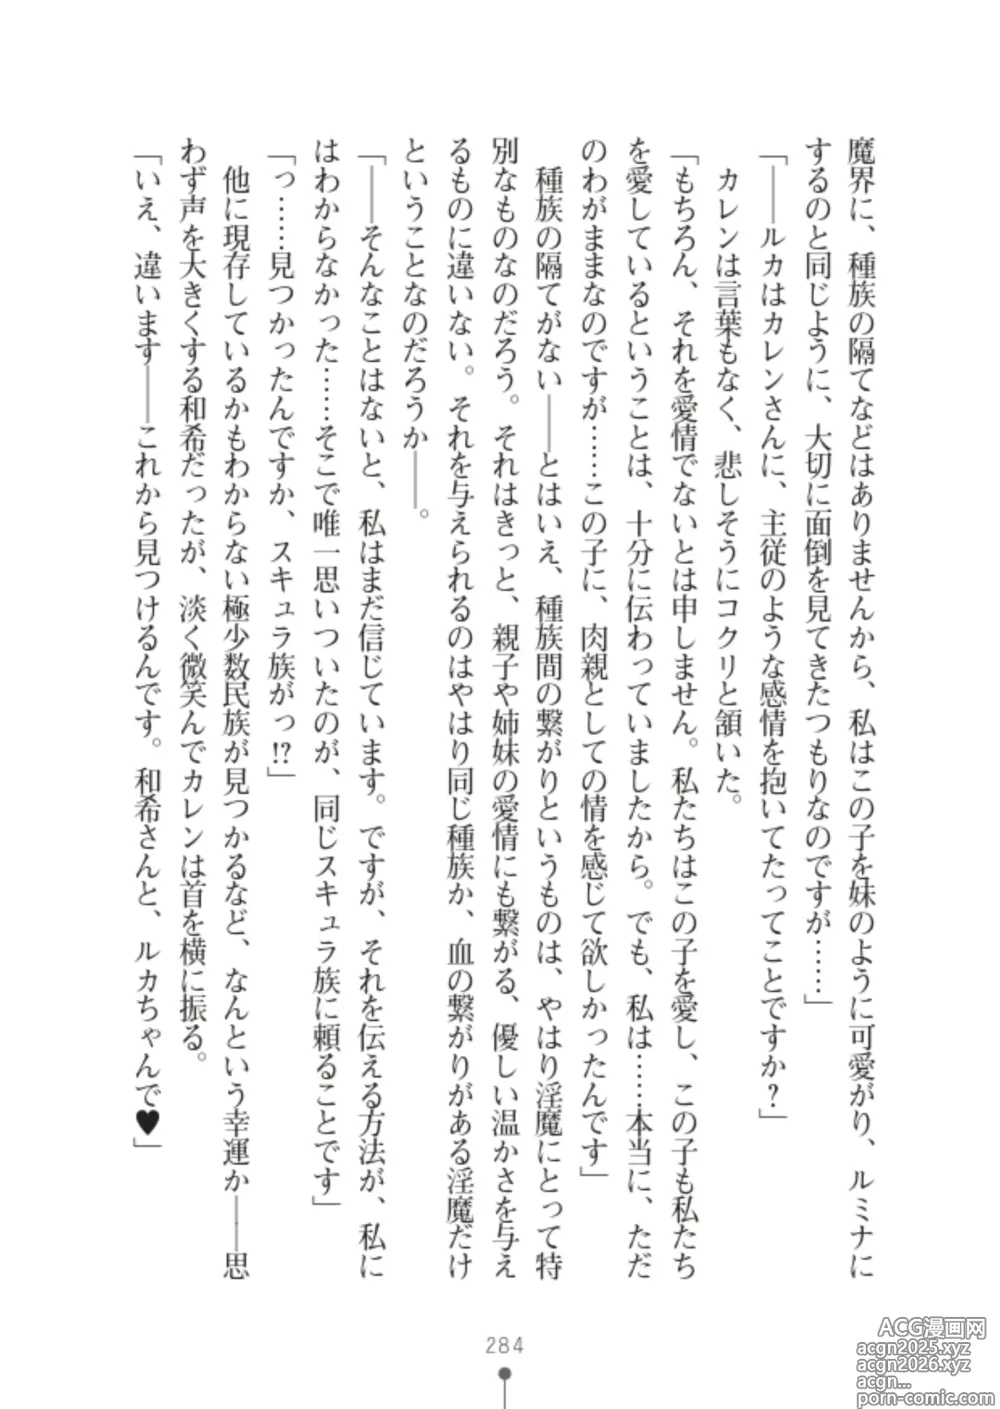 魔界に、種族の隔てなどはありませんから、私はこの子を妹のように可愛がり、ルミナに
するのと同じように、大切に面倒を見てきたつもりなのですが……」
「――ルカはカレンさんに、主従のような感情を抱いてたってことですか?」
カレンは言葉もなく、悲しそうにコクリと頷いた。
「もちろん、それを愛情でないとは申しません。私たちはこの子を愛し、この子も私たち
を愛しているということは、十分に伝わっていましたから。でも、私は……本当に、ただ
のわがままなのですが……この子に、肉親としての情を感じて欲しかったんです」
種族の隔てがない――とはいえ、種族間の繋がりというものは、やはり淫魔にとって特
別なものなのだろう。それはきっと、親子や姉妹の愛情にも繋がる、優しい温かさを与え
るものに違いない。それを与えられるのはやはり同じ種族か、血の繋がりがある淫魔だけ
ということなのだろうか――。
「――そんなことはないと、私はまだ信じています。ですが、それを伝える方法が、私に
はわからなかった……そこで唯一思いついたのが、同じスキュラ族に頼ることです」
「っ……見つかったんですか、スキュラ族がっ!?」
他に現存しているかもわからない極少数民族が見つかるなど、なんという幸運か――思
わず声を大きくする和希だったが、淡く微笑んでカレンは首を横に振る。
「いえ、違います――これから見つけるんです。和希さんと、ルカちゃんで♥」
284
ACG漫画网
acgn2025.xyz
acgn2026.xyz
acgn...
porn-comic.com